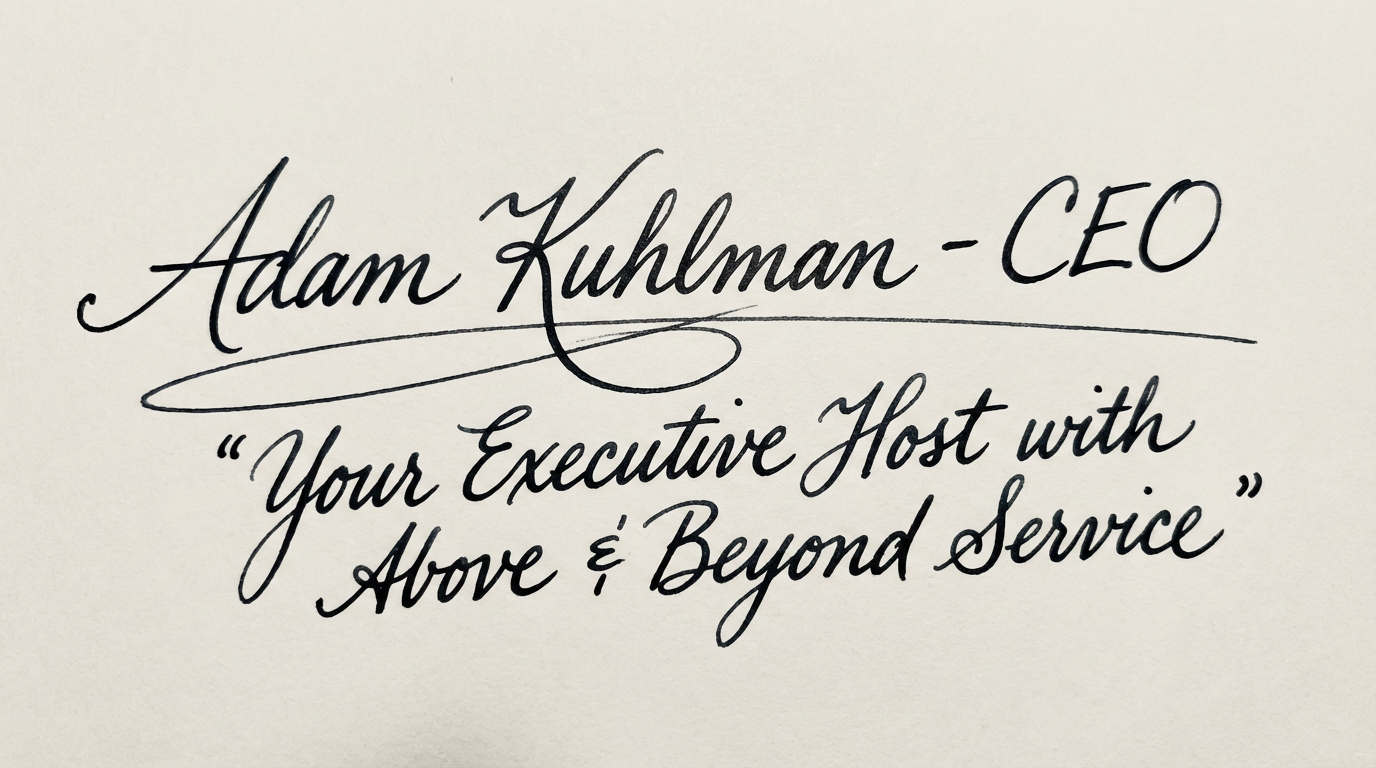 Adam Kuhlman - CEO
“Your Executive Host with
Above & Beyond Service”